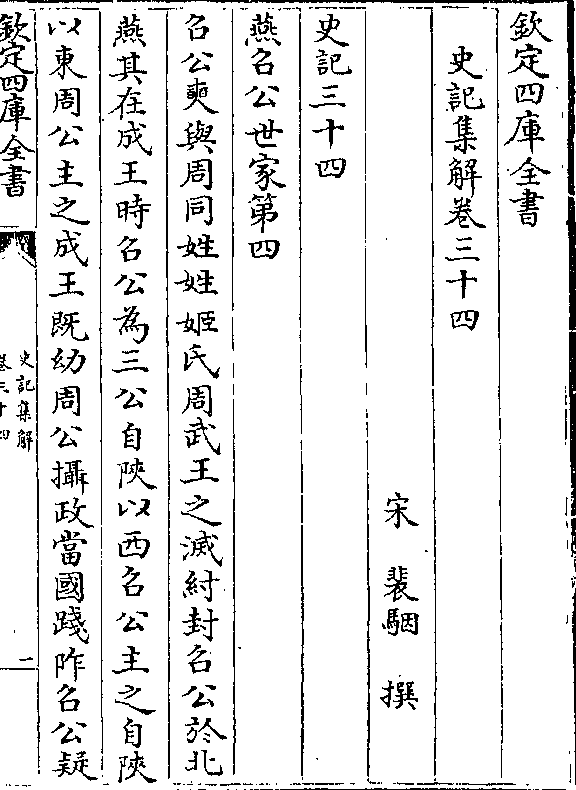 欽定四庫全書
史記集解卷三十四
宋 裴駰 撰
史記三十四
燕召公世家第四
召公奭與周同姓姓姬氏周武王之滅紂封召公於北
燕其在成王時召公為三公自陜以西召公主之自陜
以東周公主之成王既幼周公攝政當國踐阼召公疑
欽定四庫全書
史記集解
卷三十四
一